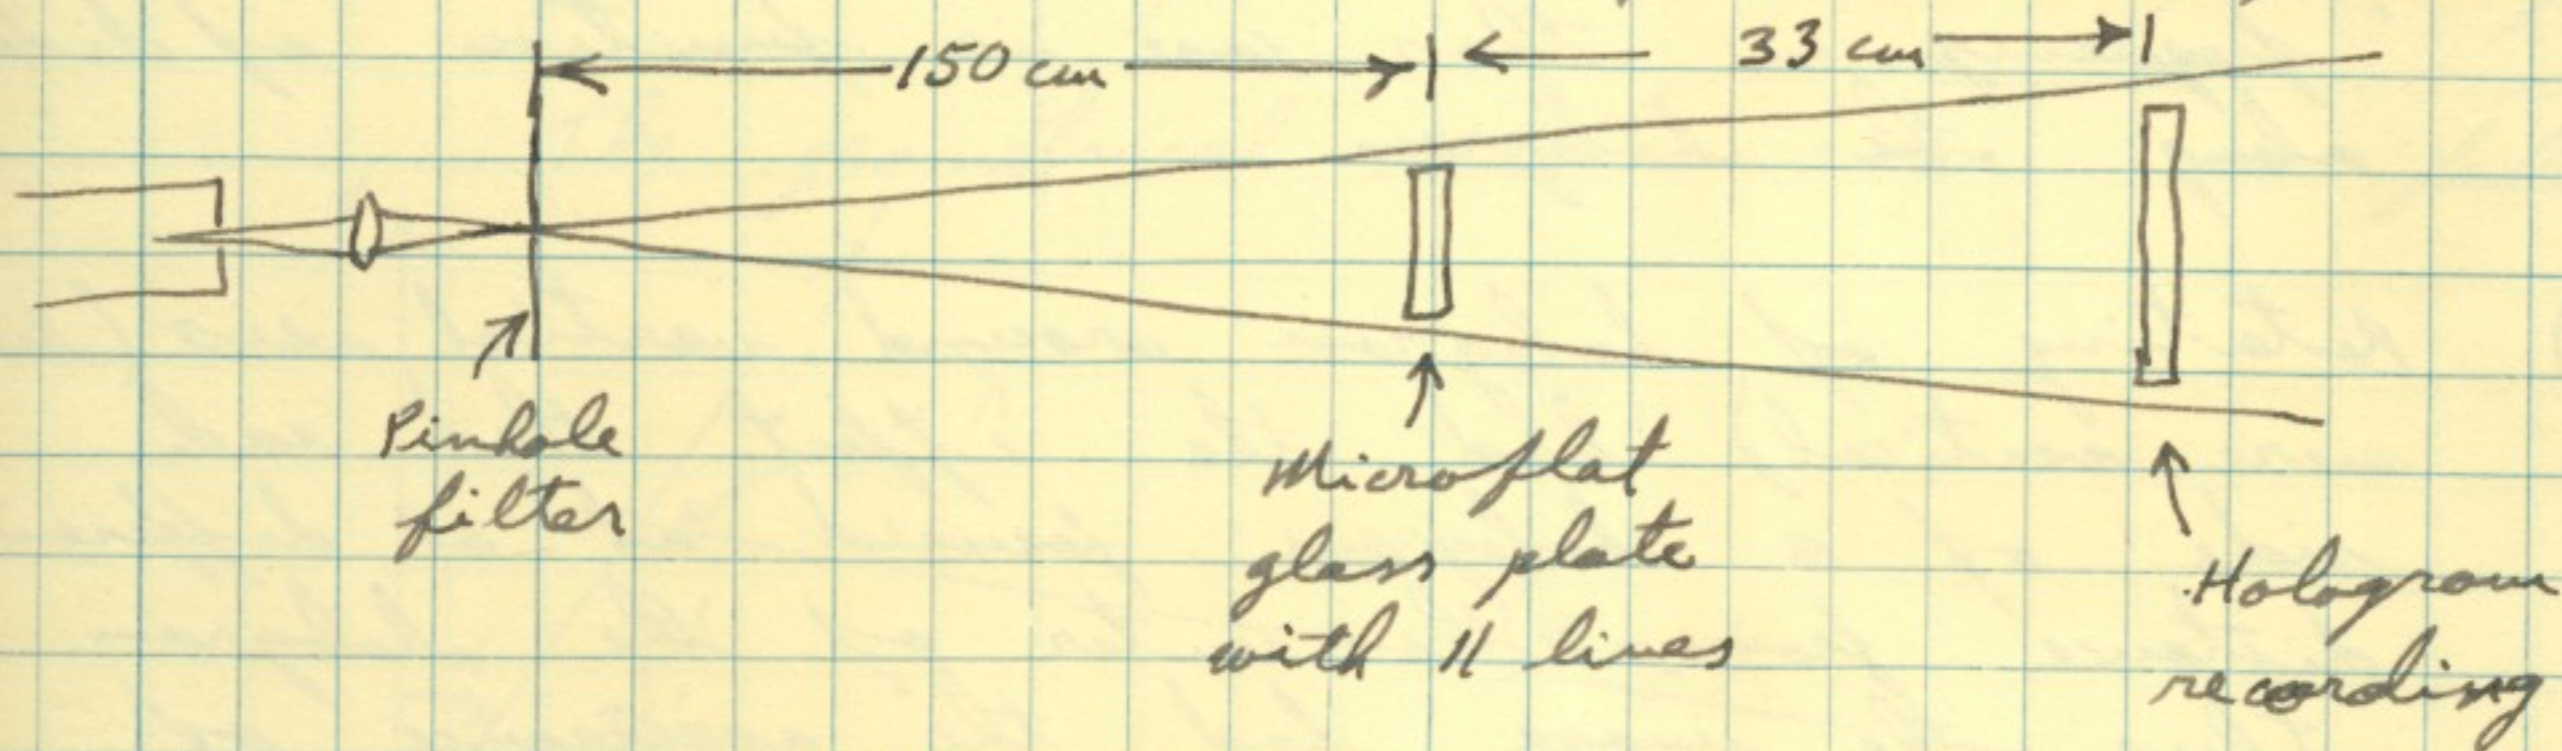 150 cm
33 cm
Pinhole
filter
Microflat
glass plate
with 11 lines
Hologram
recording